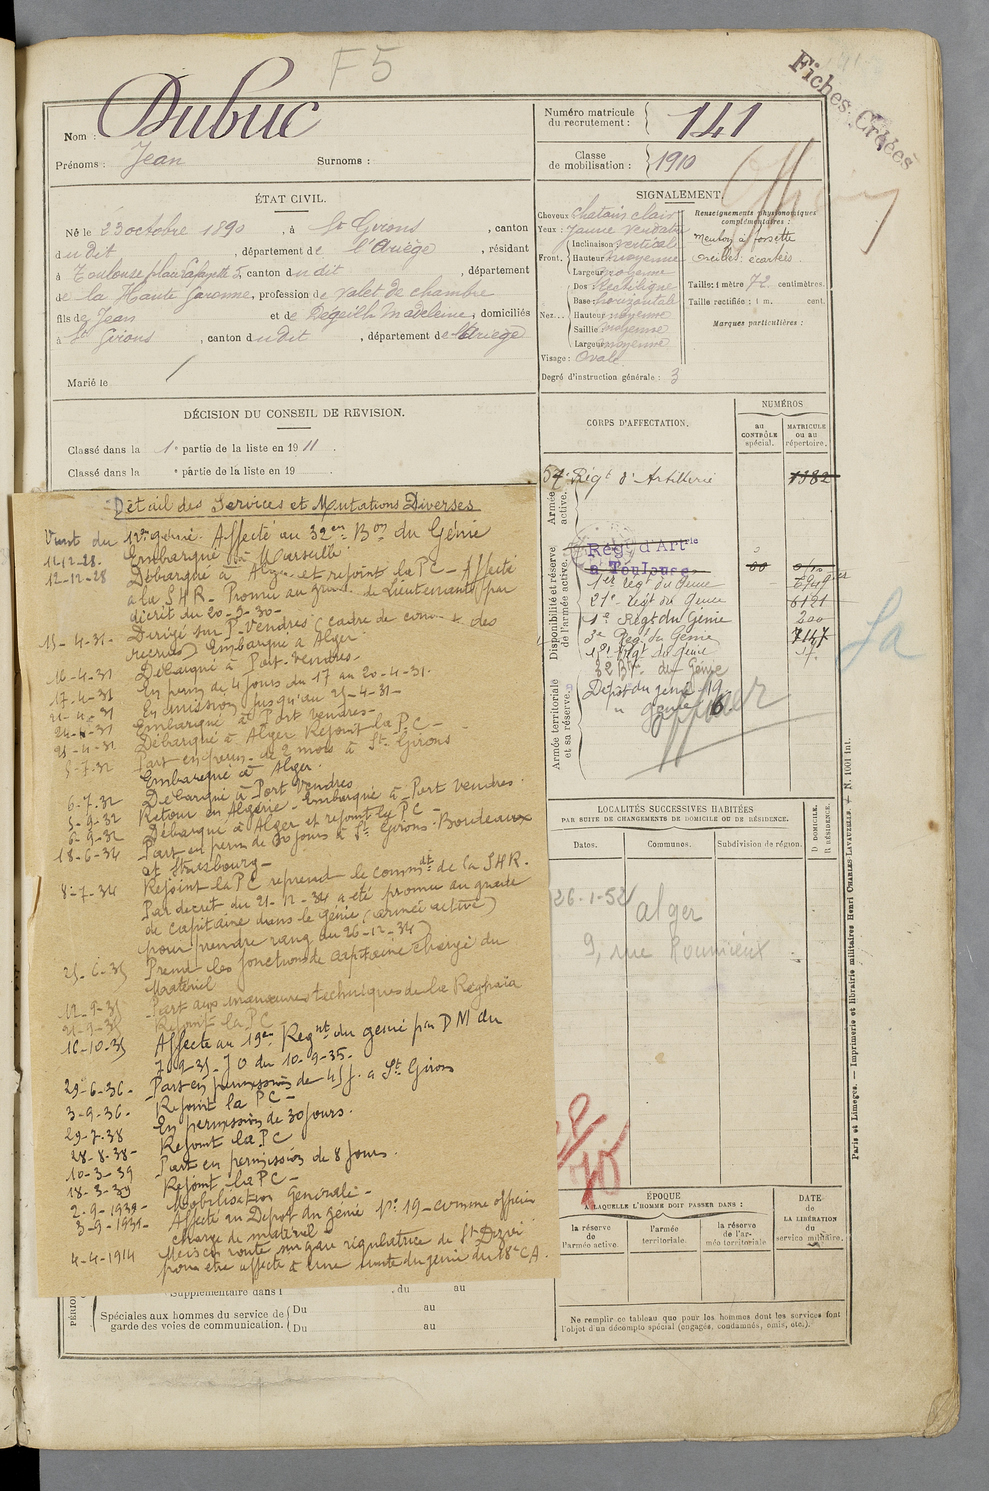 F5
Fiches Créées
Nom : Dubuc
Prénoms : Jean Surnoms :
Numéro matricule
du recrutement : 141
Classe
de mobilisation : 1910
ÉTAT CIVIL.
Né le 23 octobre 1890, à St Girons, canton
du dit, département de l'Ariège, résidant
à Toulouse place Lafayette 5, canton du dit, département
de la Haute Garonne, profession de valet de chambre
fils de Jean et de Regeilh Madeleine, domiciliés
à St Girons, canton du dit, département de l'Ariège
Marié le
DÉCISION DU CONSEIL DE REVISION.
Classé dans la 1e partie de la liste en 1911.
Classé dans la e partie de la liste en 19
SIGNALEMENT.
Cheveux chatain clair
Yeux : jaune verdatre
Front. Inclinaison verticale
Hauteur moyenne
Largeur moyenne
Nez... Dos rectiligne
Base: horizontale
Hauteur moyenne
Saillie moyenne
Largeur moyenne
Visage : Ovale
Degré d'instruction générale : 3
Renseignements physionomiques
complémentaires :
Menton à fossette
Oreilles écartées
Taille: 1 mètre 72 centimètres.
Taille rectifiée : 1 m. cent.
Marques particulières :
Officier
CORPS D'AFFECTATION.
NUMÉROS
au
CONTRÔLE
spécial.
MATRICULE
ou au
répertoire.
Armée
active.
57e Régt d'Artillerie 1382
Disponibilité et réserve
de l'armée active.
Régt d'Artrie
à Toulouse
1er Régt du Génie
21e Régt du Génie 6121
1er Régt du Génie 200
3e Régt du Génie 7147
19e Régt du Génie
32 Bon du Génie
Armée territoriale
et sa réserve.
Dépôt du génie 19
" génie 16
Officier
Détail des Services et Mutations Diverses
Vient du 1er génie. Affecté au 32em Bon du Génie
11-12-28. Embarqué à Marseille
12-12-28 Débarqué à Alger et rejoint la PC - Affecté
à la SHR - Promu au grade de Lieutenant (par
décret du 20-9-30-
15-4-31- Dirigé sur P. Vendres (cadre de conv. des
recrues) Embarqué à Alger
16-4-31 Débarqué à Port-Vendres-
17-4-31 En perm de 4 jours du 17 au 20-4-31-
21-4-31 En mission jusqu'au 25-4-31-
24-4-31 Embarqué à Port Vendres-
25-4-31 Débarqué à Alger Rejoint la PC -
5-7-32 Part en perm. de 2 mois à St Girons
Embarqué à Alger.
6-7-32 Débarqué à Port Vendres
5-9-32 Retour en Algérie - Embarqué à Port Vendres.
6-9-32 Débarqué à Alger et rejoint la PC -
18-6-34 Part en perm de 30 jours à St Girons - Bordeaux
et Strasbourg-
8-7-34 Rejoint la PC reprend le commdt de la SHR.
Par décret du 21-12-34 a été promu au grade
de capitaine dans le Génie (armée active)
pour prendre rang du 26-12-34)
25-6-35 Prend les fonctions de capitaine chargé du
Matériel
12-9-35 Part aux manœuvres techniques de la Reghaïa
21-9-35 Rejoint la PC
16-10-35 Affecté au 19em Regnt du génie par DM du
7-9-35. JO du 10-9-35.
29-6-36- Part en permission de 45 j. a St Girons
3-9-36- Rejoint la PC-
29-7-38 En permission de 30 jours.
28-8-38- Rejoint la PC
10-3-39 Part en permission de 8 jours.
18-3-39 Rejoint la PC-
2-9-1939- Mobilisation Générale-
3-9-1939- Affecté au Dépôt du génie No 19 - comme officier
chargé de matériel-
4-4-1914 Mis en route sur gare régulatrice de St Dizier
pour être affecté à l'une unité du génie du 18e CA.
LOCALITÉS SUCCESSIVES HABITÉES
PAR SUITE DE CHANGEMENTS DE DOMICILE OU DE RÉSIDENCE.
Dates. Communes. Subdivision de région. D. DOMICILE. R. RÉSIDENCE.
26-1-52 Alger
9, rue Roumieux
ÉPOQUE
A LAQUELLE L'HOMME DOIT PASSER DANS :
la réserve
de l'armée active.
l'armée
territoriale.
la réserve
de l'ar-
mée territoriale
DATE
de
LA LIBÉRATION
du
service militaire.
Ne remplir ce tableau que pour les hommes dont les services font
l'objet d'un décompte spécial (engagés, condamnés, omis, etc.).
Supplémentaire dans l . du au
Spéciales aux hommes du service de
garde des voies de communication. Du au
Du au
Paris et Limoges. — Imprimerie et librairie militaires Henri CHARLES-LAVAUZELLE — N. 1001 int.